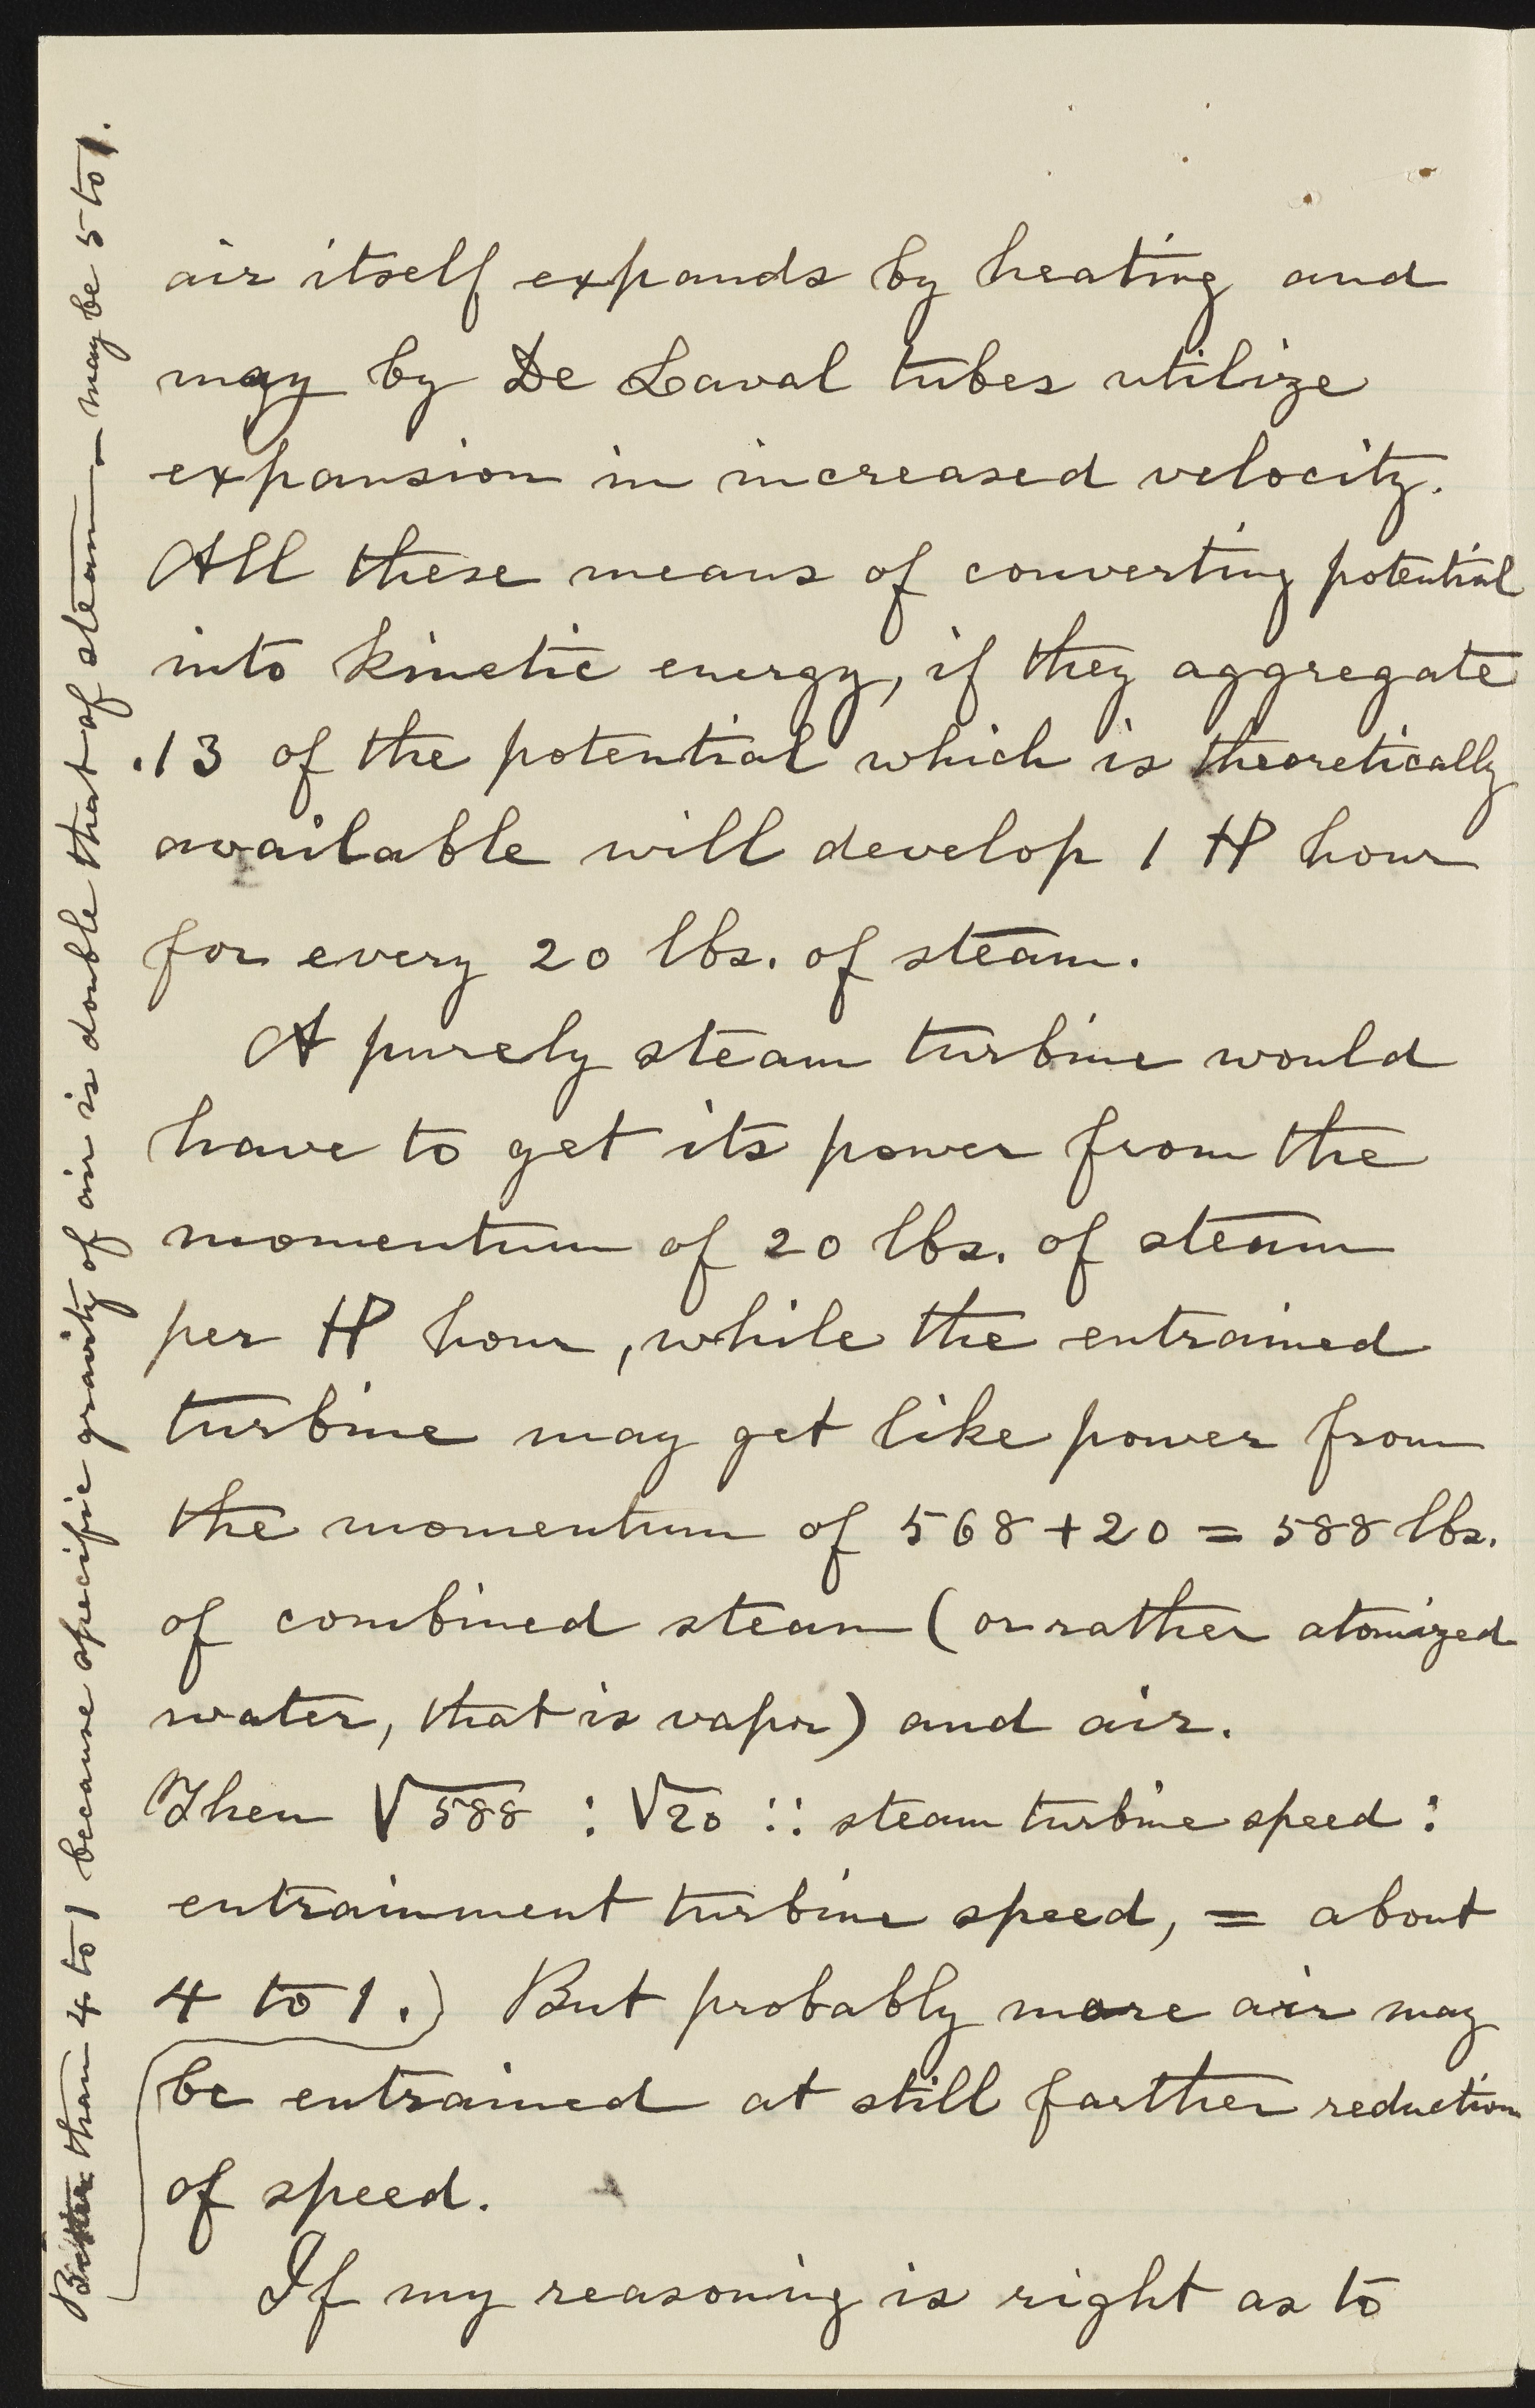 air itself expands by heating and
may by De Laval tubes utilize
expansion in increased velocity.
All these means of converting potential
into kinetic energy, if they aggregate
.13 of the potential which is theoretically
available will develop 1 HP hour
for every 20 lbs. of steam.
A purely steam turbine would
have to get its power from the
momentum of 20 lbs. of steam
per HP hour, while the entrained
turbine may get like power from
the momentum of 568 + 20 = 588 lbs.
of combined steam (or rather atomized
water, that is vapor) and air.
Then √588 : √20 :: steam turbine speed :
entrainment turbine speed, = about
4 to 1.) But probably more air may
be entrained at still farther reduction
of speed.
If my reasoning is right as to
Better than 4 to 1 because specific gravity of air is double that of steam — may be 5 to 1.